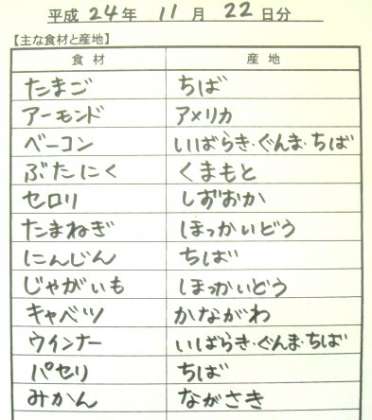 平成 24年 11月 22日分
【主な食材と産地】
食材 産地
たまご ちば
アーモンド アメリカ
ベーコン いばらき・ぐんま・ちば
ぶたにく くまもと
セロリ しずおか
たまねぎ ほっかいどう
にんじん ちば
じゃがいも ほっかいどう
キャベツ かながわ
ウインナー いばらき・ぐんま・ちば
パセリ ちば
みかん ながさき